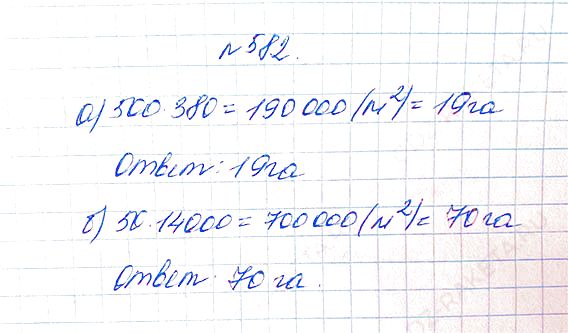 №582.
а) 500·380=190000(м²)=19га
Ответ: 19га
б) 50·14000=700000(м²)=70га
Ответ: 70га.